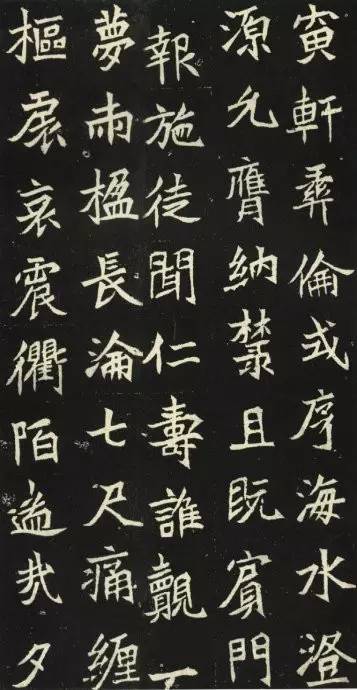 寅軒彝倫式序海水澄
源允膺納麓且既賓門
報施徒聞仁壽誰覿一
夢兩楹長淪七尺痛纏
樞扆哀震衢陌遄哉夕